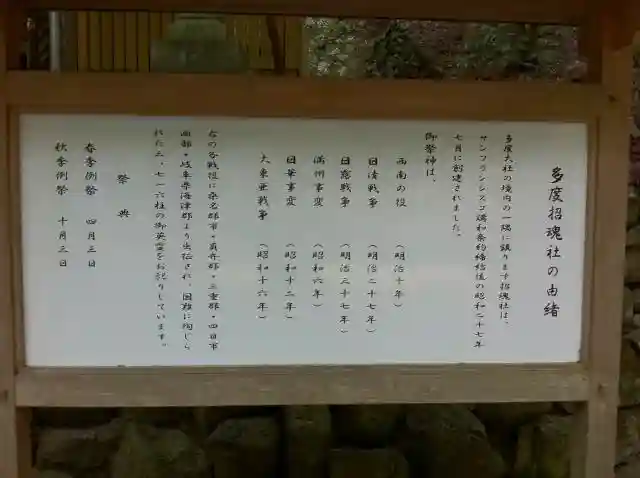 多度招魂社の由緒
多度大社の境内の一隅に鎮ります招魂社は、
サンフランシスコ講和条約締結後の昭和二十七年
七月に創建されました。
御祭神は、
西南の役 (明治十年)
日清戦争 (明治二十七年)
日露戦争 (明治三十七年)
満州事変 (昭和六年)
日華事変 (昭和十二年)
大東亜戦争 (昭和十六年)
右の各戦役に桑名郡市・員弁郡・三重郡・四日市
両部・岐阜県海津郡より出征され、国難に殉じら
れた三、七一六柱の御英霊をお祀りしています。
祭典
春季例祭 四月三日
秋季例祭 十月三日